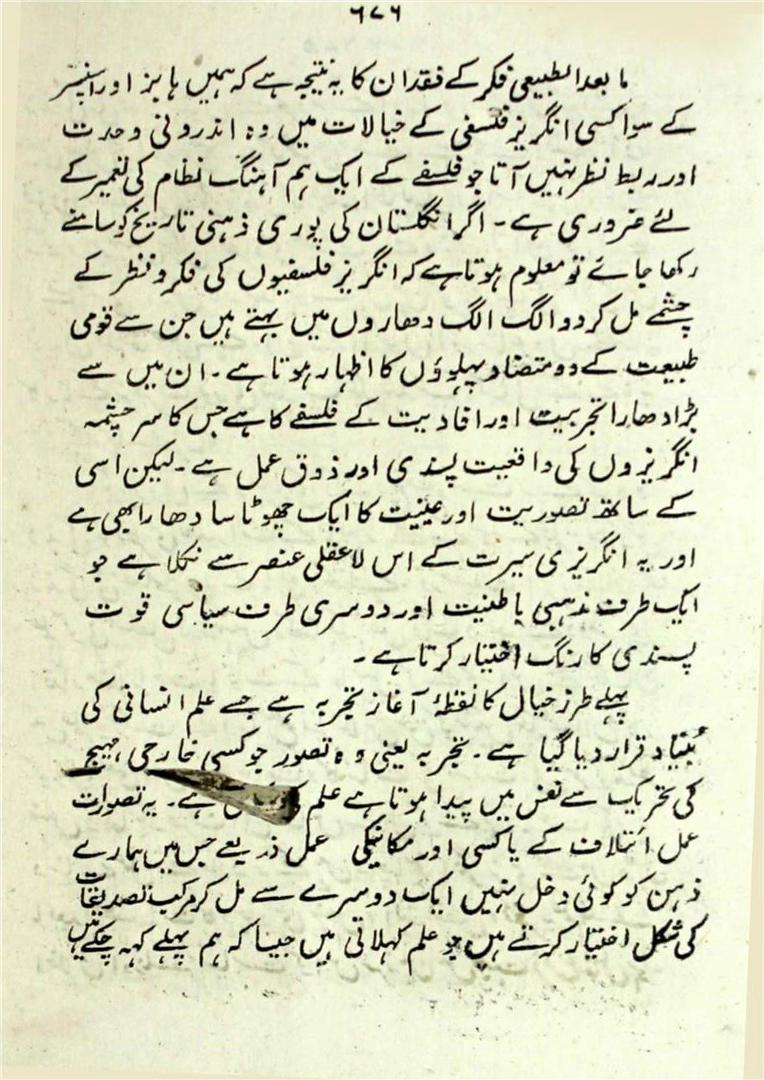 ٦٧٦
مابعد الطبیعی فکر کے فقدان کا یہ نتیجہ ہے کہ ہمیں ہابز اور اسپنسر
کے سوا کسی انگریز فلسفی کے خیالات میں وہ اندرونی وحدت
اور ربط نظر نہیں آتا جو فلسفے کے ایک ہم آہنگ نظام کی تعمیر کے
لئے ضروری ہے۔ اگر انگلستان کی پوری ذہنی تاریخ کو سامنے
رکھا جائے تو معلوم ہوتا ہے کہ انگریز فلسفیوں کی فکر و نظر کے
چشمے مل کر دو الگ الگ دھاروں میں بہتے ہیں جن سے قومی
طبیعت کے دو متضاد پہلوؤں کا اظہار ہوتا ہے۔ ان میں سے
بڑا دھارا تجربیت اور افادیت کے فلسفے کا ہے جس کا سرچشمہ
انگریزوں کی واقعیت پسندی اور ذوق عمل ہے۔ لیکن اسی
کے ساتھ تصوریت اور عینیت کا ایک چھوٹا سا دھارا بھی ہے
اور یہ انگریزی سیرت کے اس لاعقلی عنصر سے نکلا ہے جو
ایک طرف مذہبی باطنیت اور دوسری طرف سیاسی قوت
پسندی کا رنگ اختیار کرتا ہے۔
پہلے طرز خیال کا نقطۂ آغاز تجربہ ہے جسے علم انسانی کی
بُنیاد قرار دیا گیا ہے۔ تجربہ یعنی وہ تصور جو کسی خارجی مہیج
کی تحریک سے نفس میں پیدا ہوتا ہے علم ہے۔ یہ تصورات
عمل ائتلاف کے یا کسی اور مکانیکی عمل ذریعے جس میں ہمارے
ذہن کو کوئی دخل نہیں ایک دوسرے سے مل کر مرکب تصدیقات
کی شکل اختیار کرتے ہیں جو علم کہلاتی ہیں جیسا کہ ہم پہلے کہہ چکے ہیں